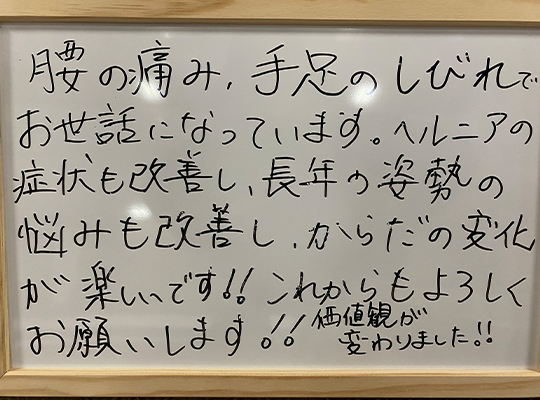 腰の痛み,手足のしびれで
お世話になっています。ヘルニアの
症状も改善し、長年の姿勢の
悩みも改善し、からだの変化
が楽しいです!! これからもよろしく
お願いします!!
価値観が
変わりました!!